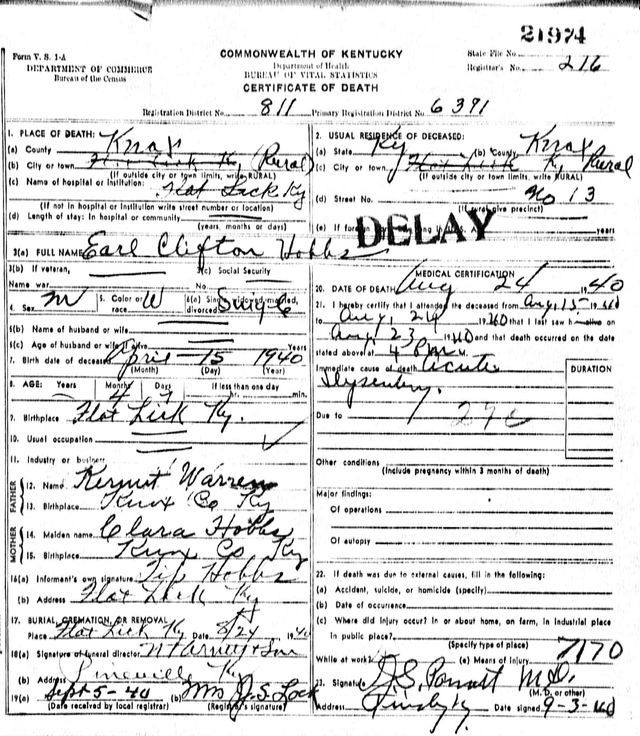 21974
Form V. S. 1-A
DEPARTMENT OF COMMERCE
Bureau of the Census
COMMONWEALTH OF KENTUCKY
Department of Health
BUREAU OF VITAL STATISTICS
CERTIFICATE OF DEATH
State File No.
Registrar's No. 216
Registration District No. 811 Primary Registration District No. 6391
1. PLACE OF DEATH:
(a) County Knox
(b) City or town Flat Lick Ky (Rural)
(If outside city or town limits, write RURAL)
(c) Name of hospital or institution: Flat Lick Ky
(If not in hospital or institution write street number or location)
(d) Length of stay: In hospital or community
(years, months or days)
3(a) FULL NAME Earl Clifton Hobbs
3(b) If veteran, 3(c) Social Security
Name war No.
4. Sex M 5. Color or race W 6(a) Single, widowed, married, divorced Single
6(b) Name of husband or wife
6(c) Age of husband or wife if alive Years
7. Birth date of deceased April 15 1940
(Month) (Day) (Year)
8. AGE: Years Months Days If less than one day
4 hr. min.
9. Birthplace Flat Lick Ky.
10. Usual occupation
11. Industry or business
FATHER
12. Name Kermit Warren
13. Birthplace Knox Co Ky
MOTHER
14. Maiden name Clara Hobbs
15. Birthplace Knox Co Ky
16(a) Informant's own signature Hobbs
(b) Address Flat Lick Ky
17. BURIAL, CREMATION, OR REMOVAL
Place Flat Lick Ky Date 8/24 1940
18(a) Signature of funeral director
(b) Address Pineville Ky
19(a) Sept 5-40 (b) Mrs J.S. Lock
(Date received by local registrar) (Registrar's signature)
2. USUAL RESIDENCE OF DECEASED:
(a) State Ky (b) County Knox
(c) City or town Flat Lick Ky Rural
(If outside city or town limits, write RURAL)
(d) Street No. No 13
(If rural give precinct)
(e) If foreign years
DELAY
MEDICAL CERTIFICATION
20. DATE OF DEATH Aug 24 1940
21. I hereby certify that I attended the deceased from Aug, 15- 1940
to Aug, 24 1940 that I last saw h alive on
Aug, 23 1940 and that death occurred on the date
stated above at 4 PM M.
Immediate cause of death Acute
Dysentery.
DURATION
Due to 27c
Other conditions
(Include pregnancy within 3 months of death)
Major findings:
Of operations
Of autopsy
22. If death was due to external causes, fill in the following:
(a) Accident, suicide, or homicide (specify)
(b) Date of occurrence
(c) Where did injury occur? In or about home, on farm, in industrial place
in public place?
(Specify type of place)
7170
While at work? (e) Means of injury
23. Signature M.D.
(M. D. or other)
Address Date signed 9-3-40